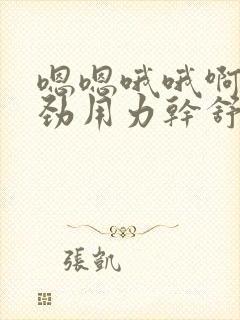 嗯嗯哦哦啊
劲用力幹舒
張凱